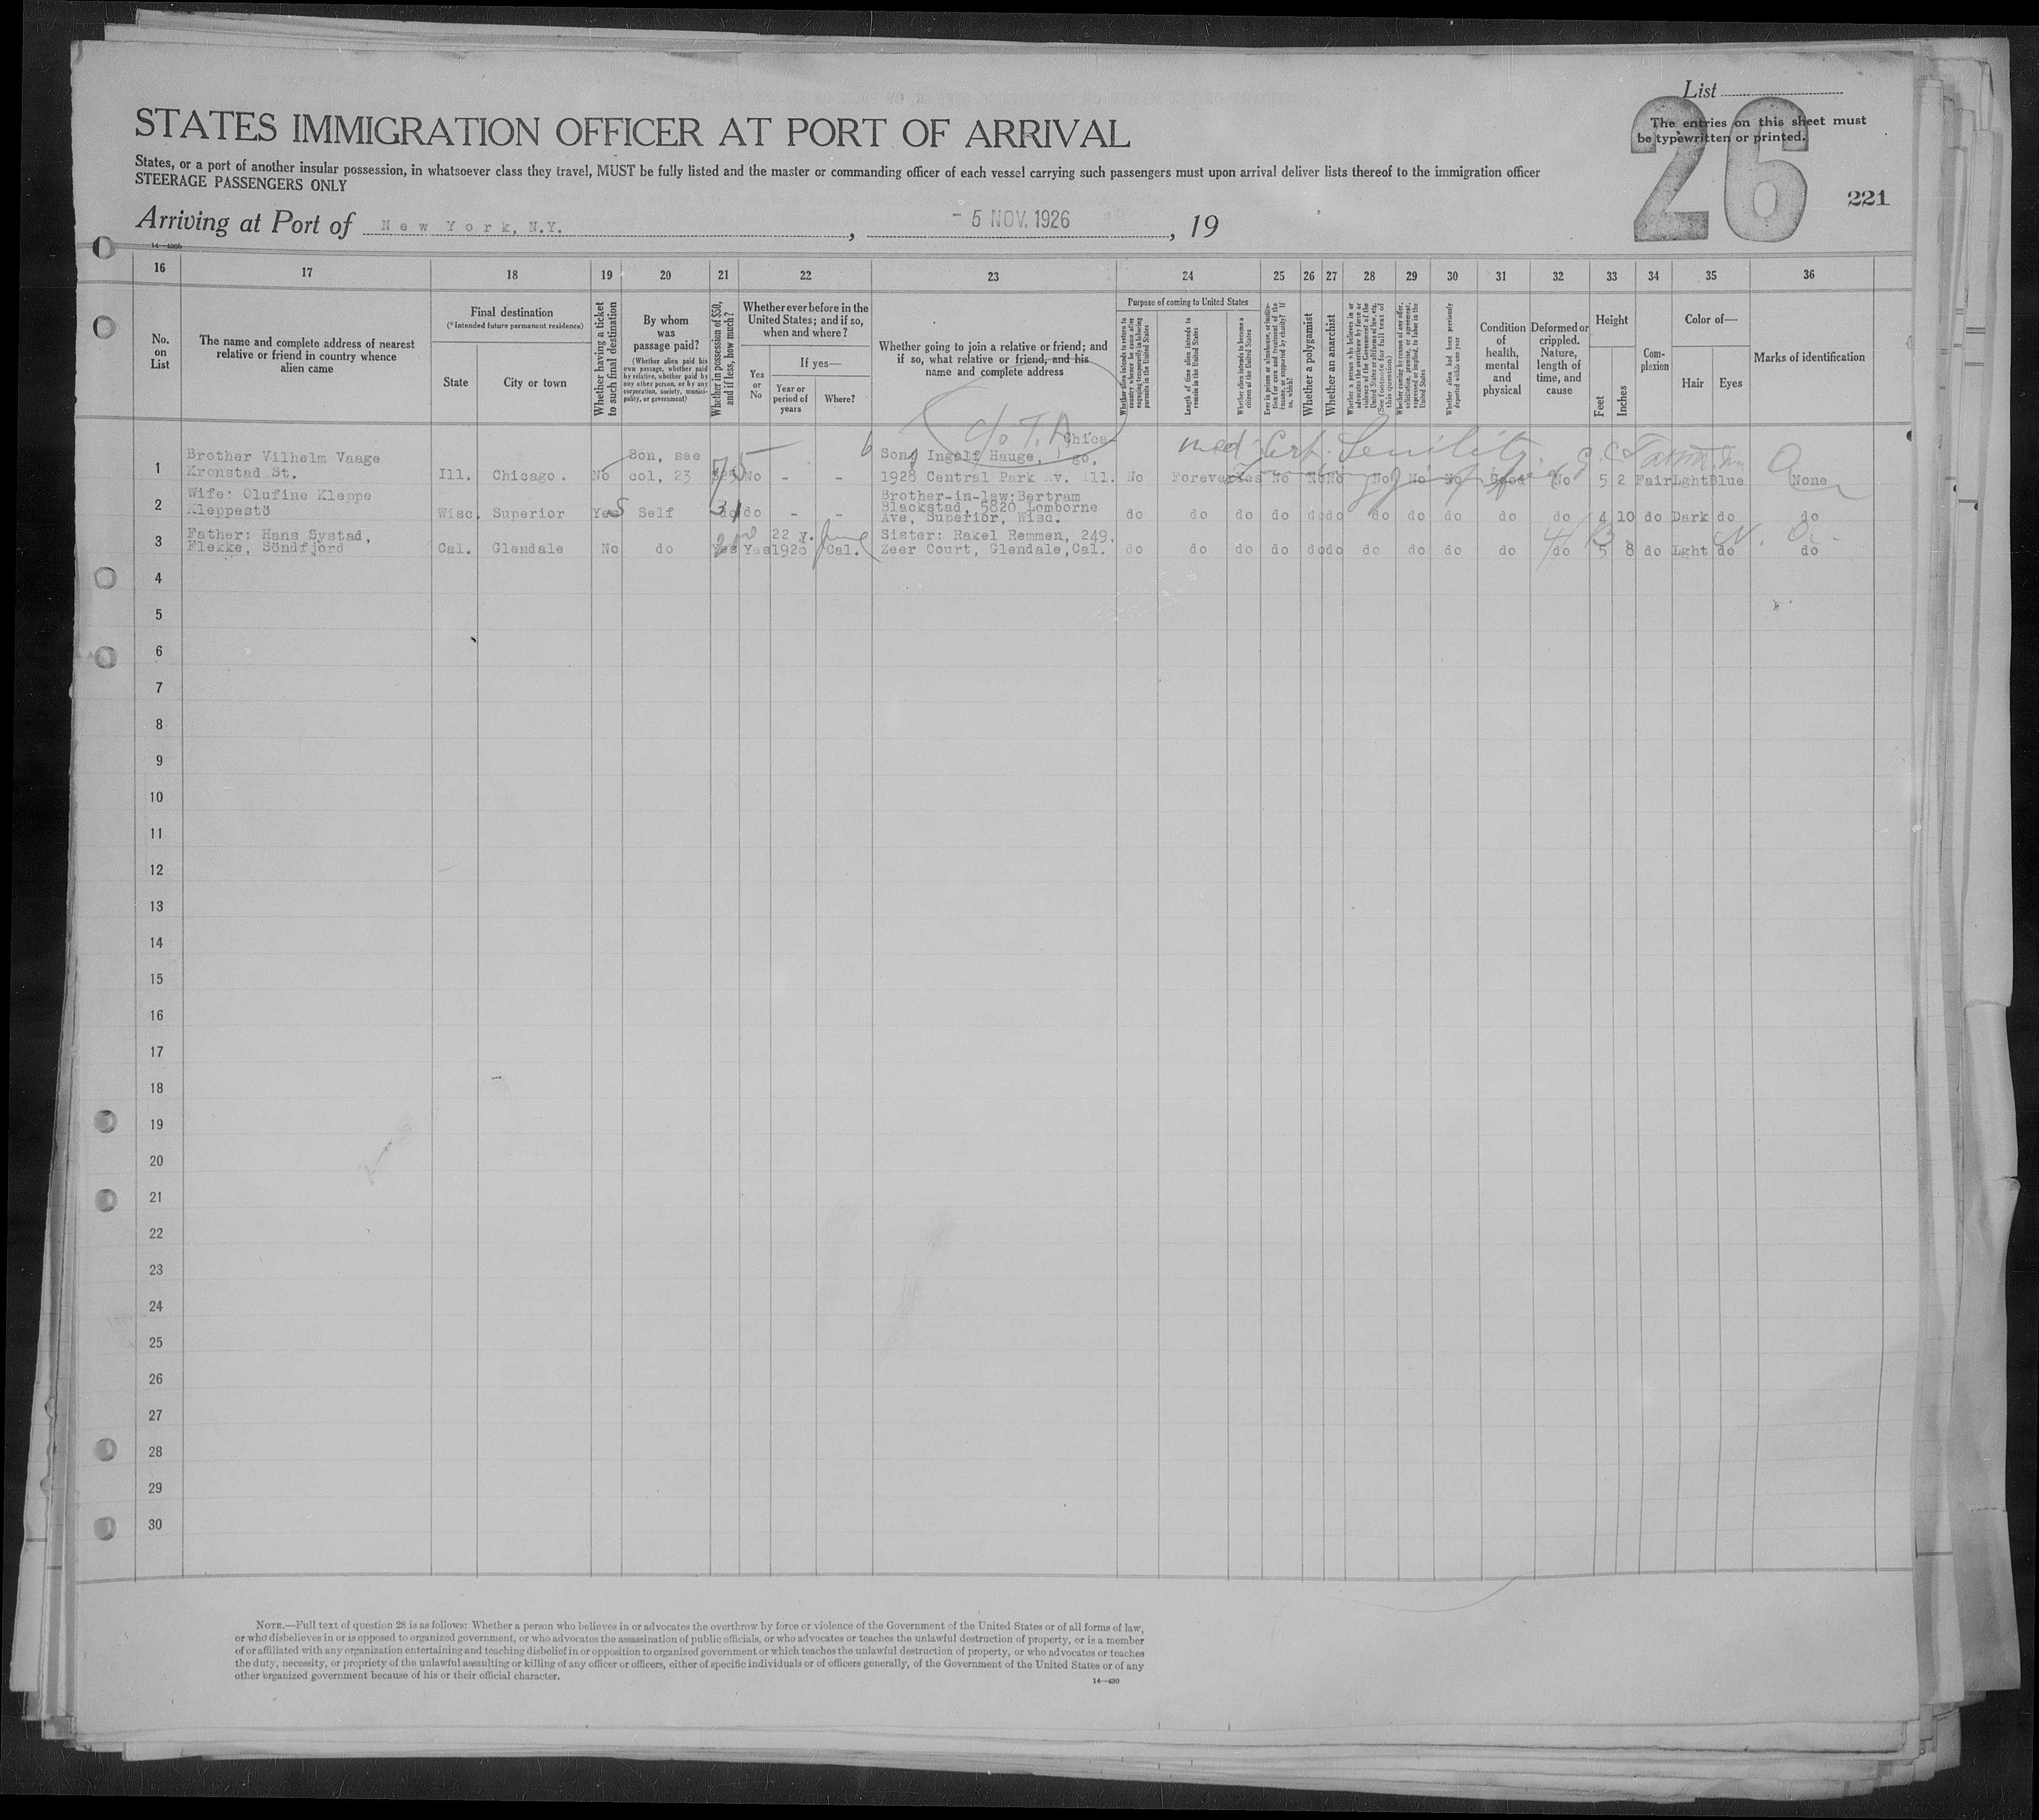 List
26
The entries on this sheet must
be typewritten or printed.
STATES IMMIGRATION OFFICER AT PORT OF ARRIVAL
States, or a port of another insular possession, in whatsoever class they travel, MUST be fully listed and the master or commanding officer of each vessel carrying such passengers must upon arrival deliver lists thereof to the immigration officer
STEERAGE PASSENGERS ONLY
221
Arriving at Port of New York, N.Y. , - 5 NOV. 1926 , 19
14—430b
16 17 18 19 20 21 22 23 24 25 26 27 28 29 30 31 32 33 34 35 36
No.
on
List
The name and complete address of nearest
relative or friend in country whence
alien came
Final destination
(*Intended future permanent residence)
State
City or town
Whether having a ticket
to such final destination
By whom
was
passage paid?
(Whether alien paid his
own passage, whether paid
by relative, whether paid by
any other person, or by any
corporation, society, munici-
pality, or government)
Whether in possession of $50,
and if less, how much?
Whether ever before in the
United States; and if so,
when and where?
Yes
or
No
If yes—
Year or
period of
years
Where?
Whether going to join a relative or friend; and
if so, what relative or friend, and his
name and complete address
Purpose of coming to United States
Whether alien intends to return to
country whence he came after
engaging temporarily in laboring
pursuits in the United States
Length of time alien intends to
remain in the United States
Whether alien intends to become a
citizen of the United States
Ever in prison or almshouse, or institu-
tion for care and treatment of the
insane, or supported by charity? If
so, which?
Whether a polygamist
Whether an anarchist
Whether a person who believes in or
advocates the overthrow by force or
violence of the Government of the
United States or all forms of law, etc.
(See footnote for full text of
this question)
Whether coming by reason of any offer,
solicitation, promise, or agreement,
expressed or implied, to labor in the
United States
Whether alien had been previously
deported within one year
Condition
of
health,
mental
and
physical
Deformed or
crippled.
Nature,
length of
time, and
cause
Height
Feet
Inches
Com-
plexion
Color of—
Hair
Eyes
Marks of identification
c/o T.A
med Cert. Senility
1 Brother Vilhelm Vaage Son, see Chica-
Kronstad St. Ill. Chicago. No col, 23 75 No - - Son Ingolf Hauge, go,
1928 Central Park Av. Ill. No Forever Yes No No No No No No Good No 5 2 Fair Lght Blue None
2 Wife: Olufine Kleppe Brother-in-law: Bertram
Kleppestö Wisc. Superior Yes Self 31 do - - Blackstad, 5820 Lomborne
Ave, Superior, Wisc. do do do do do do do do do do do 4 10 do Dark do do
3 Father: Hans Systad, 22 y. June Sister: Rakel Remmen, 249,
Flekke, Söndfjord Cal. Glendale No do Yes Yes 1920 Cal. Zeer Court, Glendale, Cal. do do do do do do do do do do do 5 8 do Lght do do
4
5
6
7
8
9
10
11
12
13
14
15
16
17
18
19
20
21
22
23
24
25
26
27
28
29
30
NOTE.—Full text of question 28 is as follows: Whether a person who believes in or advocates the overthrow by force or violence of the Government of the United States or of all forms of law,
or who disbelieves in or is opposed to organized government, or who advocates the assassination of public officials, or who advocates or teaches the unlawful destruction of property, or is a member
of or affiliated with any organization entertaining and teaching disbelief in or opposition to organized government or which teaches the unlawful destruction of property, or who advocates or teaches
the duty, necessity, or propriety of the unlawful assaulting or killing of any officer or officers, either of specific individuals or of officers generally, of the Government of the United States or of any
other organized government because of his or their official character.
14—430